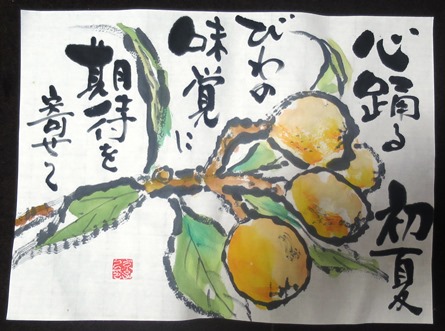 心踊る
初夏
びわの
味覚に
期待を
寄せて